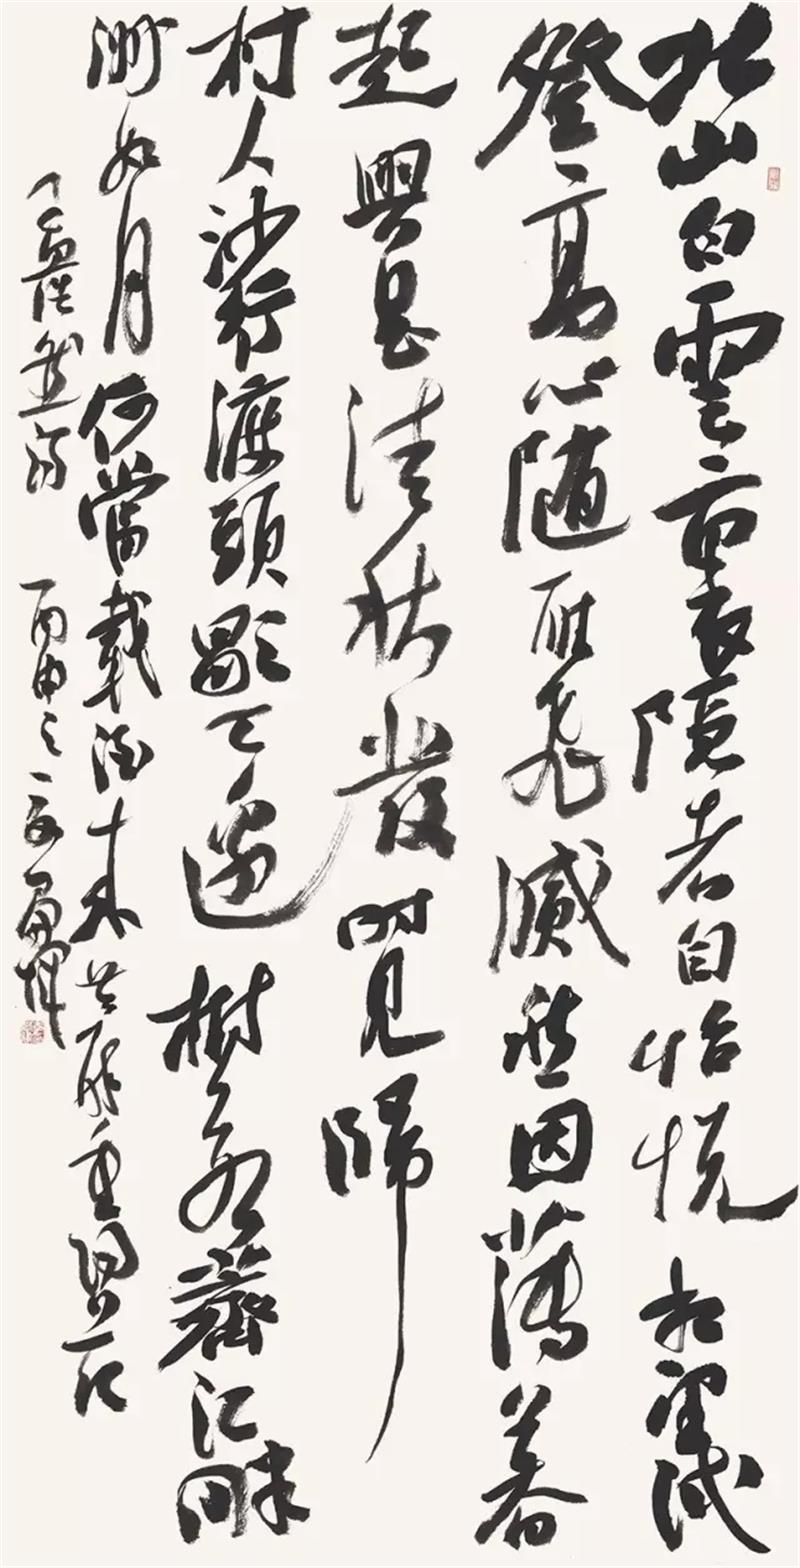 北山白雲裏隱者自怡悅相望試
登高心随雁飛滅愁因薄暮
起興是清秋發時見歸
村人沙行渡頭歇天邊樹若薺江畔
洲如月何當載酒來共醉重陽節
孟浩然詩 丙申之